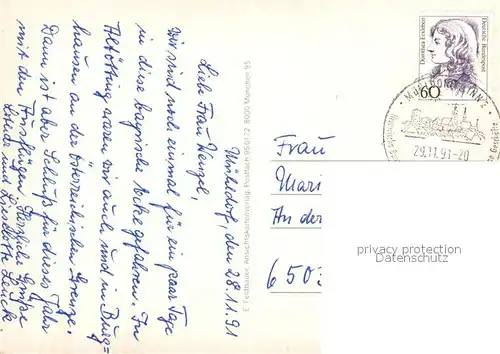 Mühldorf, den 28.11.91
Liebe Frau Wenzel,
wir sind noch einmal für ein paar Tage
in diese bayrische Ecke gefahren. In
Altötting waren wir auch und in Burg=
hausen an der österreichischen Grenze.
Dann ist aber Schluß für dieses Jahr
mit den Ausflügen. Herzliche Grüße
und Lieselotte Leuck.
E. Festbauer, Ansichtskartenverlag, Postfach 950172, 8000 München 95
Dorothea Erxleben
Deutsche Bundespost
60
29.11.91-20
Frau
Mari
An der
6503
privacy protection
Datenschutz